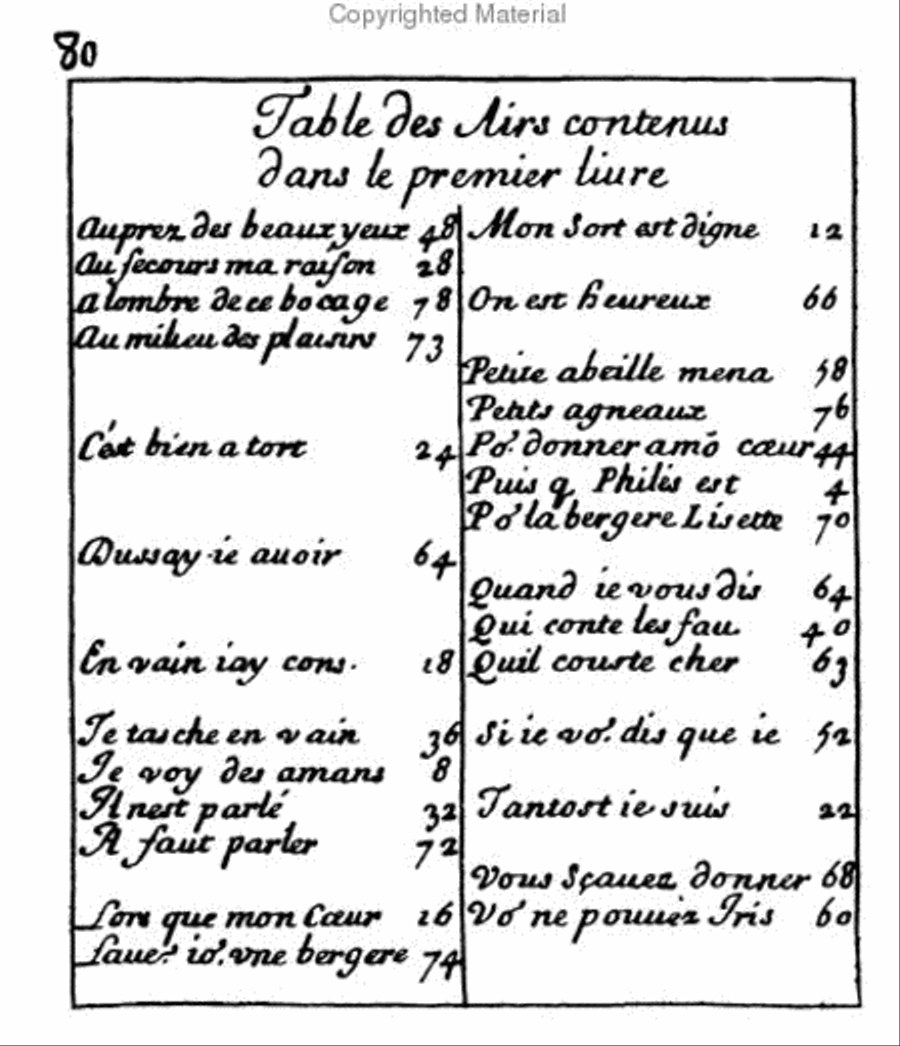 Copyrighted Material
80
Table des Airs contenus
dans le premier liure
Auprez des beaux yeux 48
Au secours ma raison 28
A lombre de ce bocage 78
Au milieu des plaisirs 73
C'est bien a tort 24
Dussay-ie auoir 64
En vain iay cons. 18
Je tasche en vain 36
Je voy des amans 8
Il nest parlé 32
Il faut parler 72
Lors que mon Cœur 16
vne bergere 74
Mon Sort est digne 12
On est heureux 66
Petite abeille mena 58
Petits agneaux 76
Po.r donner a mõ cœur 44
Puis q. Philis est 4
Po.r la bergere Lisette 70
Quand ie vous dis 64
Qui conte les fau. 40
Quil couste cher 63
Si ie vo.s dis que ie 52
Tantost ie suis 22
Vous Sçauez donner 68
Vo.s ne pouuez Iris 60